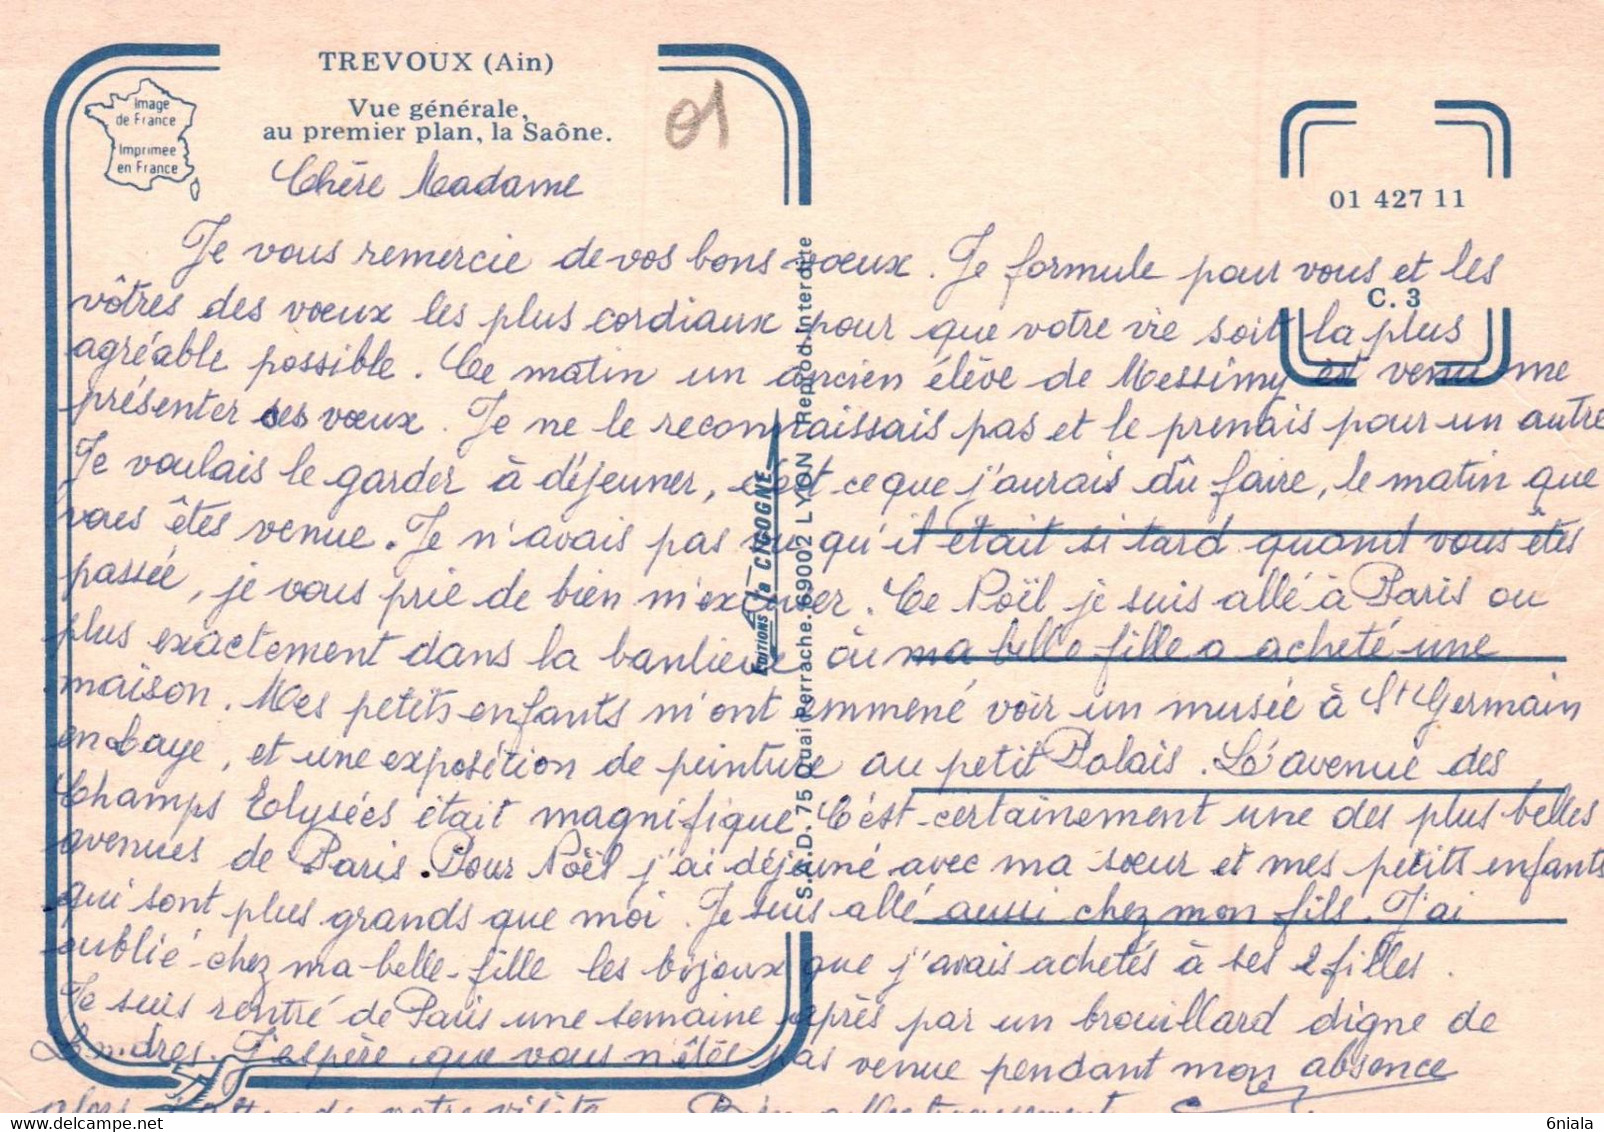 TREVOUX (Ain)
Image
de France
Imprimée
en France
Vue générale,
au premier plan, la Saône.
01
01 427 11
C. 3
Chère Madame
Je vous remercie de vos bons voeux. Je formule pour vous et les
vôtres des voeux les plus cordiaux pour que votre vie soit la plus
agréable possible. Ce matin un ancien élève de Messimy est venu me
présenter ses voeux. Je ne le reconnaissais pas et le prenais pour un autre
Je voulais le garder à déjeuner, c'est ce que j'aurais dû faire, le matin que
vous êtes venue. Je n'avais pas vu qu'il était si tard quand vous êtes
passée, je vous prie de bien m'excuser. Ce Noël je suis allé à Paris ou
plus exactement dans la banlieue où ma belle fille a acheté une
maison. Mes petits enfants m'ont emmené voir un musée à St Germain
en Laye, et une exposition de peinture au petit Palais. L'avenue des
Champs Elysées était magnifique. C'est certainement une des plus belles
avenues de Paris. Pour Noël j'ai déjeuné avec ma soeur et mes petits enfants
qui sont plus grands que moi. Je suis allé aussi chez mon fils. J'ai
oublié chez ma belle-fille les bijoux que j'avais achetés à ses 2 filles.
Je suis rentré de Paris une semaine après par un brouillard digne de
Londres. J'espère que vous n'êtes pas venue pendant mon absence
alors de votre visite Bien affectueusement
Editions la CIGOGNE
S.A.D. 75 Quai Perrache. 69002 LYON Reprod. Interdite
www.delcampe.net
6niala